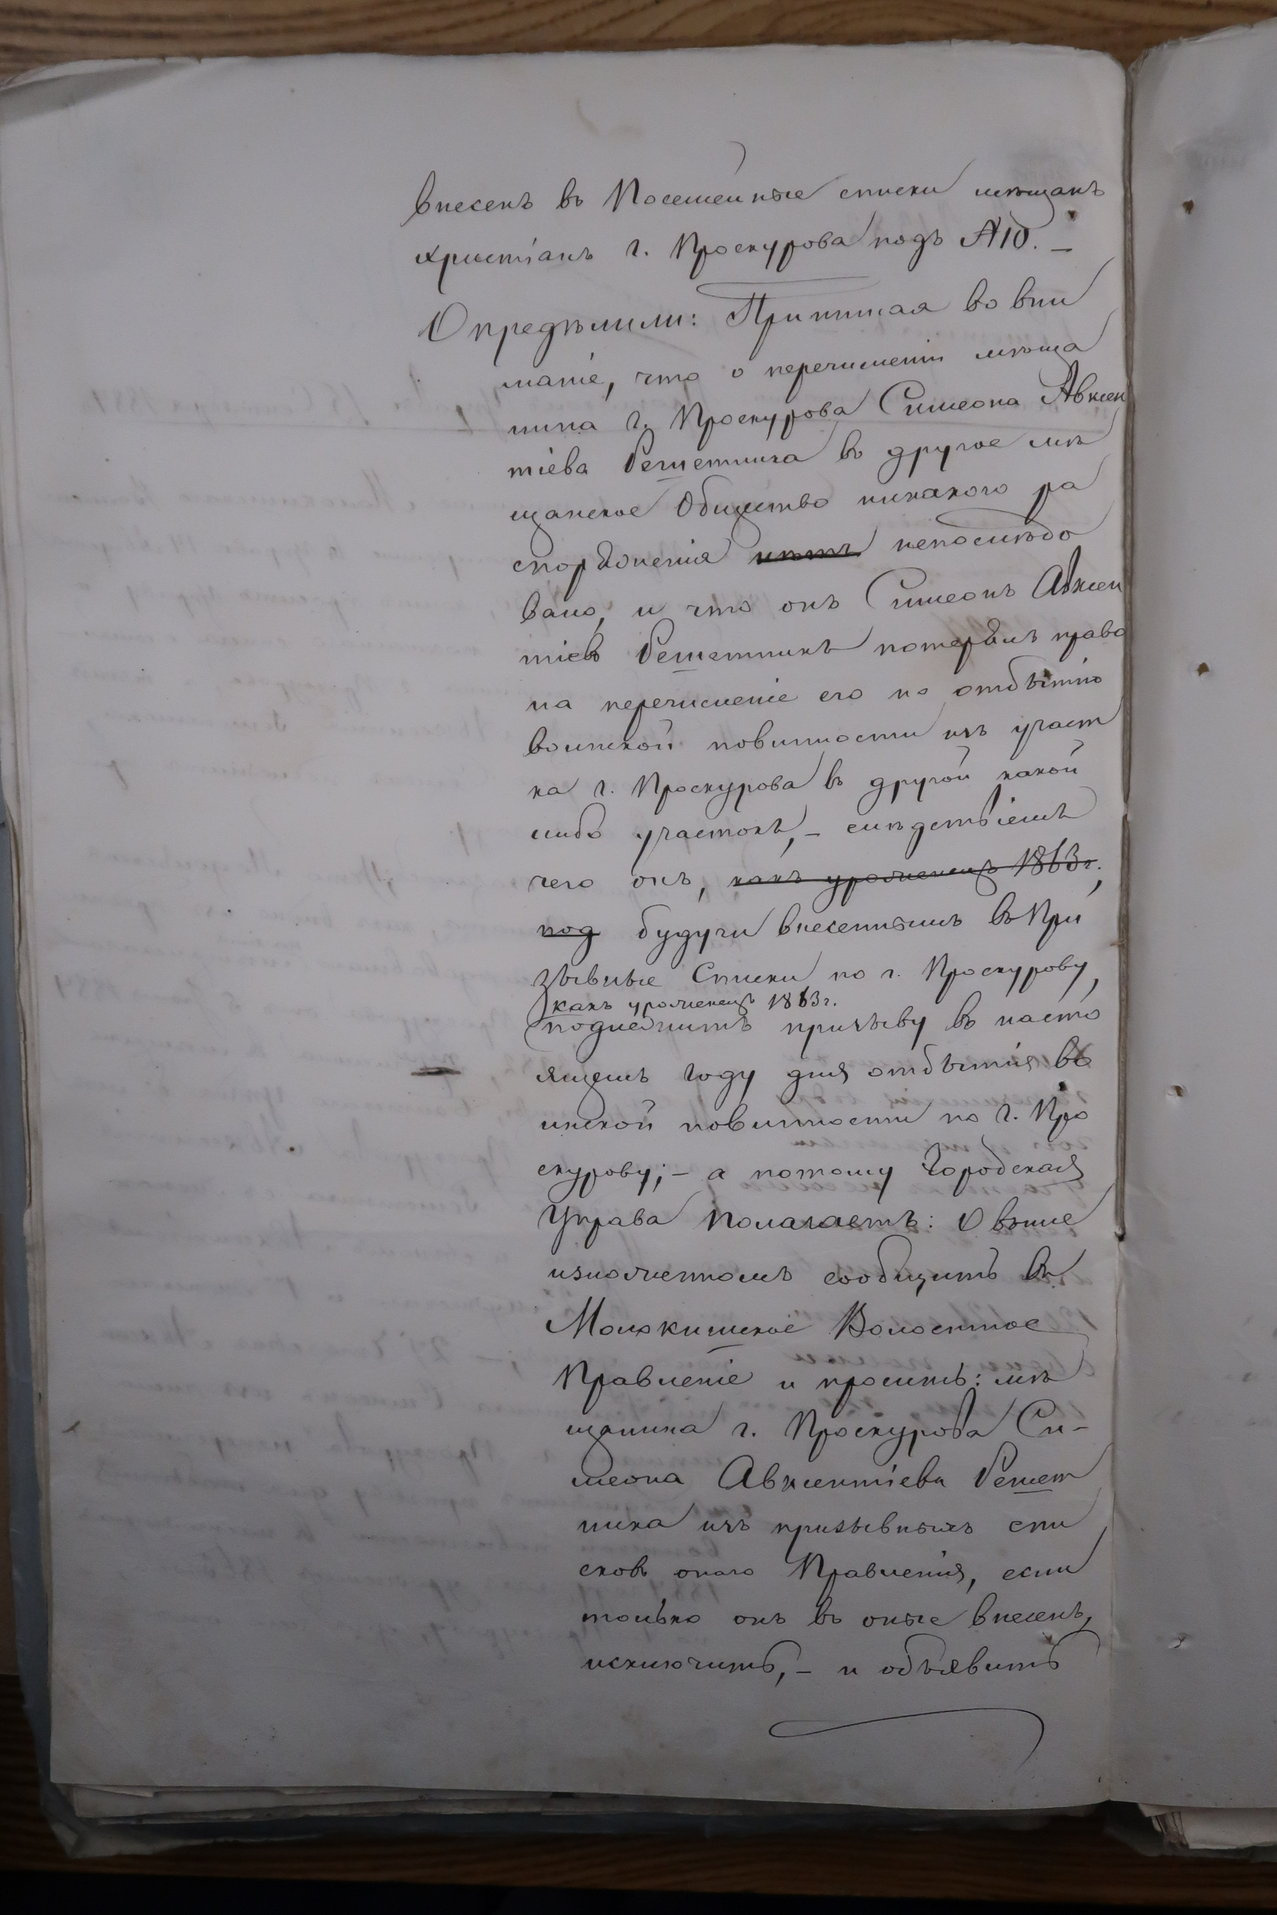 внесенъ въ Посемейные списки мѣщанъ
христіанъ г. Проскурова подъ №10. —
Опредѣлили: Принимая во вни
маніе, что о перечисленіи мѣща
нина г. Проскурова Симеона Авксен
тіева Решетника въ другое мѣ
щанское Общество никакого ра
споряженія нѣтъ непослѣдо
вало, и что онъ Симеонъ Авксен
тіевъ Решетникъ потерялъ право
на перечисленіе его по отбытію
воинской повинности изъ участ
ка г. Проскурова въ другой какой
либо участокъ, — слѣдствіемъ
чего онъ, какъ уроженецъ 1863 г.,
под будучи внесеннымъ въ При
зывные Списки по г. Проскурову,
какъ уроженецъ 1863 г.
подлежитъ призыву въ насто
ящемъ году для отбытія во
инской повинности по г. Про
скурову; — а потому Городская
Управа Полагаетъ: О выше
изложенномъ сообщить въ
Молокишское Волостное
Правленіе и просить: мѣ
щанина г. Проскурова Си-
меона Авксентіева Решет
ника изъ призывныхъ спи
сковъ онаго Правленія, если
только онъ въ оные внесенъ,
исключить, — и объявить